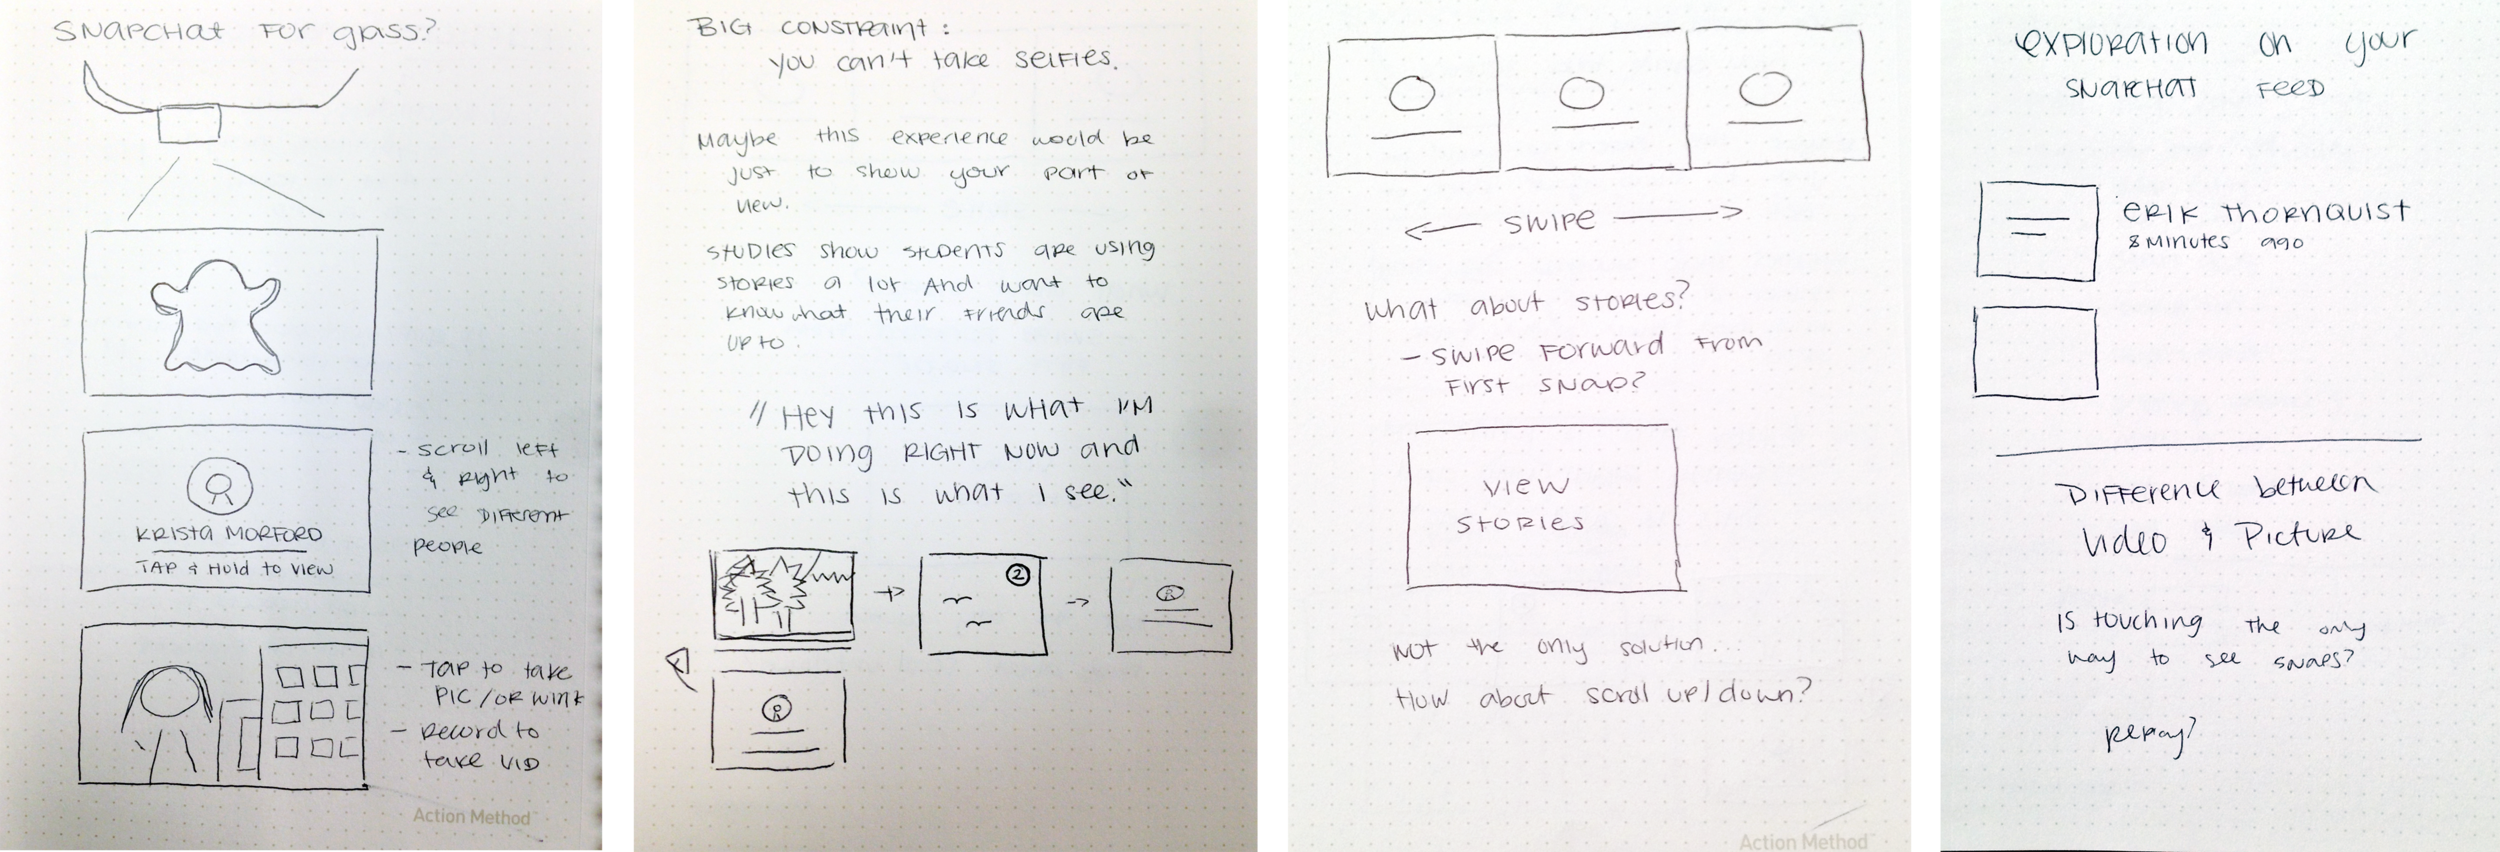 SNAPCHAT FOR glass?
- scroll left
& Right to
see DIFFERENT
people
KRISTA MORFORD
TAP & Hold to view
- TAP to take
PIC/OR WINK
- Record to
take VID
Action Method
BIG CONSTRAINT:
you can't take SELFIES.
Maybe this experience would be
just to show your part of
view.
STUDIES show STUDENTS are using
stories a lot And want to
know what their Friends are
up to.
"Hey this is what I'M
DOING RIGHT NOW and
this is what I see."
2
SWIPE
what about stories?
- SWIPE FORWARD From
First SNAP?
VIEW
STORIES
Not the only solution...
How about scroll up/down?
Action Method
exploration on your
SNAPCHAT FEED
ERIK THORNQUIST
8 Minutes ago
DIFFerence between
Video & Picture
Is touching the only
way to see snaps?
Replay?